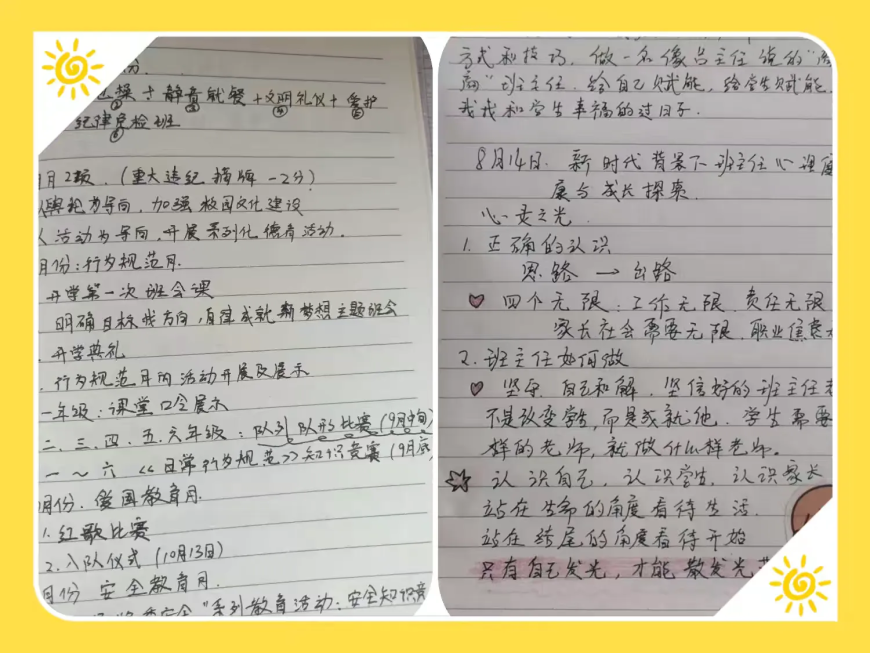 份.
操+静音就餐+文明礼仪+爱护
② ③ ④ ⑤
纪律免检班
⑥
月2项.(重大违纪 摘牌 -2分)
为导向,加强校园文化建设
活动为导向,开展系列化德育活动.
月份:行为规范月.
开学第一次班会课
明确目标找方向,自律成就新梦想主题班会
开学典礼
行为规范月内活动开展及展示
一年级:课堂口令展示
二、三、四、五、六年级:队列队形比赛(9月中旬)
一~六《日常行为规范》知识竞赛(9月底
月份.爱国教育月.
1.红歌比赛
2.入队仪式(10月13日)
月份 安全教育月.
安全"系列教育活动:安全知识竞
方式和技巧,做一名像吕主任说的"
班主任.给自己赋能,给学生赋能.
我我和学生幸福的过日子.
8月14日.新时代背景下班主任心理
康与成长探索.
心灵之光.
1.正确的认识
思路→出路
四个无限:工作无限.责任无限
家长社会需要无限.职业焦虑
2.班主任如何做
坚守.自己和解.坚信好的班主任
不是改变学生,而是成就他.学生需要
样的老师,就做什么样老师.
认识自己,认识学生,认识家长
站在生命的角度看待生活.
站在结尾的角度看待开始
只有自己发光,才能散发光